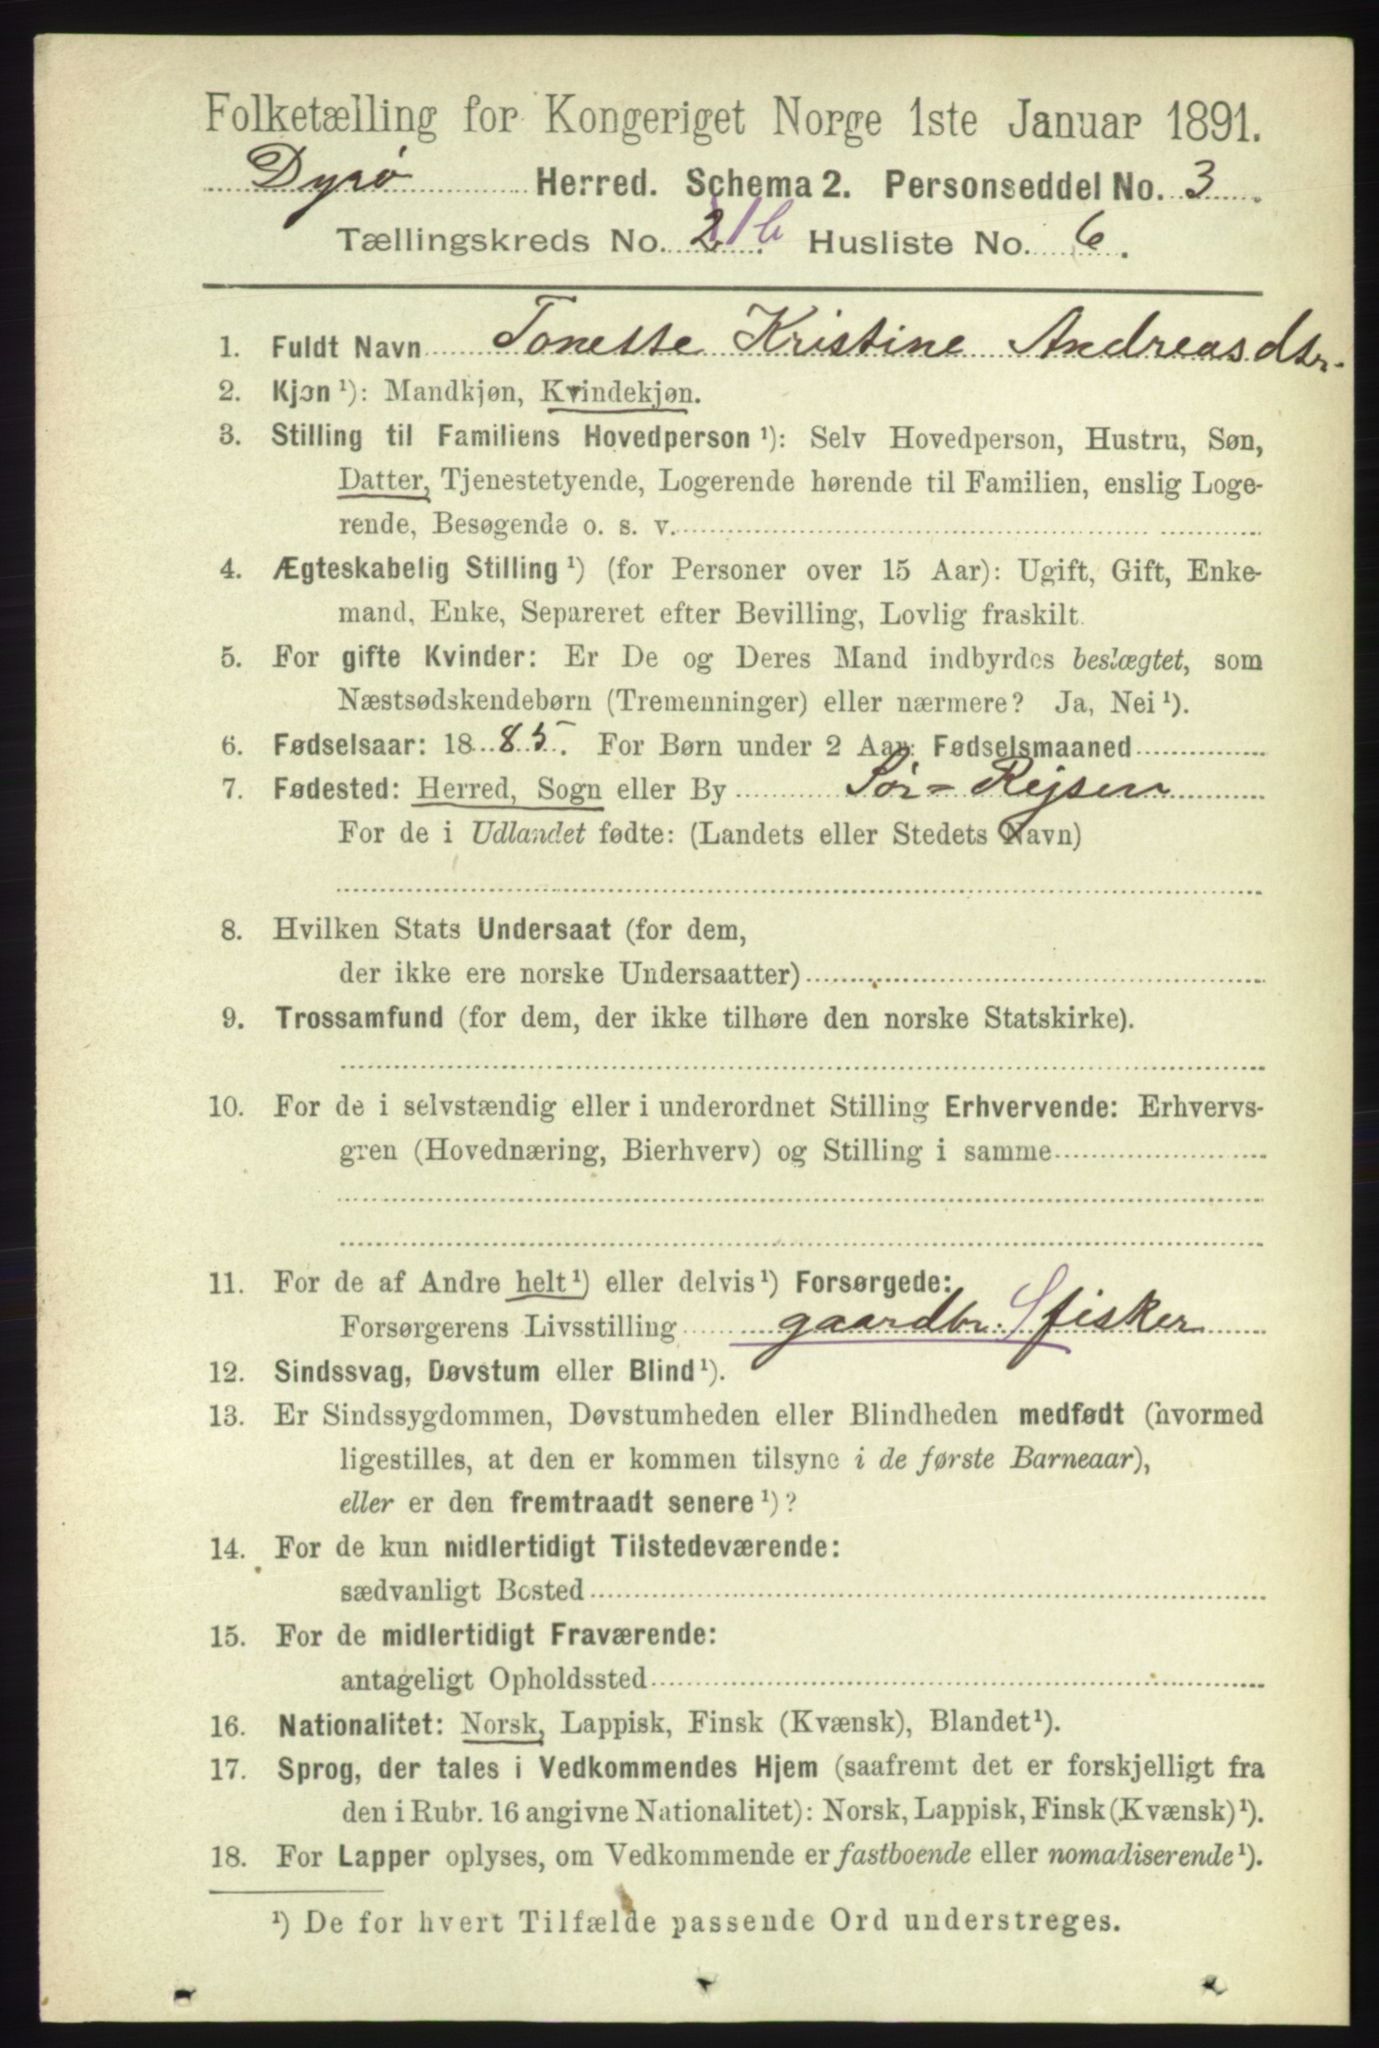 Folketælling for Kongeriget Norge 1ste Januar 1891.
Dyrø Herred. Schema 2. Personseddel No. 3.
Tællingskreds No. 2 1b Husliste No. 6.
1. Fuldt Navn Tonette Kristine Andreasdtr.
2. Kjøn ¹): Mandkjøn, Kvindekjøn.
3. Stilling til Familiens Hovedperson ¹): Selv Hovedperson, Hustru, Søn,
Datter, Tjenestetyende, Logerende hørende til Familien, enslig Loge-
rende, Besøgende o. s. v.
4. Ægteskabelig Stilling ¹) (for Personer over 15 Aar): Ugift, Gift, Enke-
mand, Enke, Separeret efter Bevilling, Lovlig fraskilt.
5. For gifte Kvinder: Er De og Deres Mand indbyrdes beslægtet, som
Næstsødskendebørn (Tremenninger) eller nærmere? Ja, Nei ¹).
6. Fødselsaar: 1885. For Børn under 2 Aar: Fødselsmaaned
7. Fødested: Herred, Sogn eller By Sør-Rejsen
For de i Udlandet fødte: (Landets eller Stedets Navn)
8. Hvilken Stats Undersaat (for dem,
der ikke ere norske Undersaatter)
9. Trossamfund (for dem, der ikke tilhøre den norske Statskirke).
10. For de i selvstændig eller i underordnet Stilling Erhvervende: Erhvervs-
gren (Hovednæring, Bierhverv) og Stilling i samme
11. For de af Andre helt ¹) eller delvis ¹) Forsørgede:
Forsørgerens Livsstilling gaardbr. fisker
12. Sindssvag, Døvstum eller Blind ¹).
13. Er Sindssygdommen, Døvstumheden eller Blindheden medfødt (hvormed
ligestilles, at den er kommen tilsyne i de første Barneaar),
eller er den fremtraadt senere ¹)?
14. For de kun midlertidigt Tilstedeværende:
sædvanligt Bosted
15. For de midlertidigt Fraværende:
antageligt Opholdssted
16. Nationalitet: Norsk, Lappisk, Finsk (Kvænsk), Blandet ¹).
17. Sprog, der tales i Vedkommendes Hjem (saafremt det er forskjelligt fra
den i Rubr. 16 angivne Nationalitet): Norsk, Lappisk, Finsk (Kvænsk) ¹).
18. For Lapper oplyses, om Vedkommende er fastboende eller nomadiserende ¹).
¹) De for hvert Tilfælde passende Ord understreges.